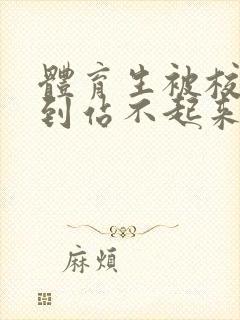 體育生被校
到佔不起来
麻煩